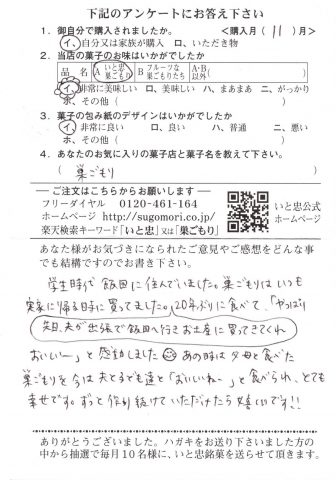 下記のアンケートにお答え下さい
1．御自分で購入されましたか。 <購入月（ 11 ）月>
イ、自分又は家族が購入 ロ、いただき物
2．当店の菓子のお味はいかがでしたか
品 名 A いと忠巣ごもり B フルーツな巣ごもりたち A・B以外（ ）
イ、非常に美味しい ロ、美味しい ハ、まあまあ ニ、がっかり
ホ、その他（ ）
3．菓子の包み紙のデザインはいかがでしたか
イ、非常に良い ロ、良い ハ、普通 ニ、悪い
ホ、その他（ ）
4．あなたのお気に入りの菓子店と菓子名を教えて下さい。
（ 巣ごもり ）
ご注文はこちらからお願いします
フリーダイヤル 0120-461-164
ホームページ http://sugomori.co.jp/
楽天検索キーワード「いと忠」又は「巣ごもり」
いと忠公式
ホームページ
あなた様がお気づきになられたご意見やご感想をどんな事
でも結構ですのでお書き下さい。
学生時代 飯田に住んでいました。巣ごもりは いつも
実家に帰る時に買ってました。20年ぶりに食べて、「やっぱり
先日、夫が出張で飯田へ行き お土産に買ってきてくれ
おいしいー」と感動しました あの時は 父母と食べた
巣ごもりを 今は 夫と子ども達と「おいしいねー」と食べられ、とても
幸せです。ずっと作り続けていただけたら嬉しいです!!
ありがとうございました。ハガキをお送り下さいました方の
中から抽選で毎月１０名様に、いと忠銘菓を送らせて頂きます。